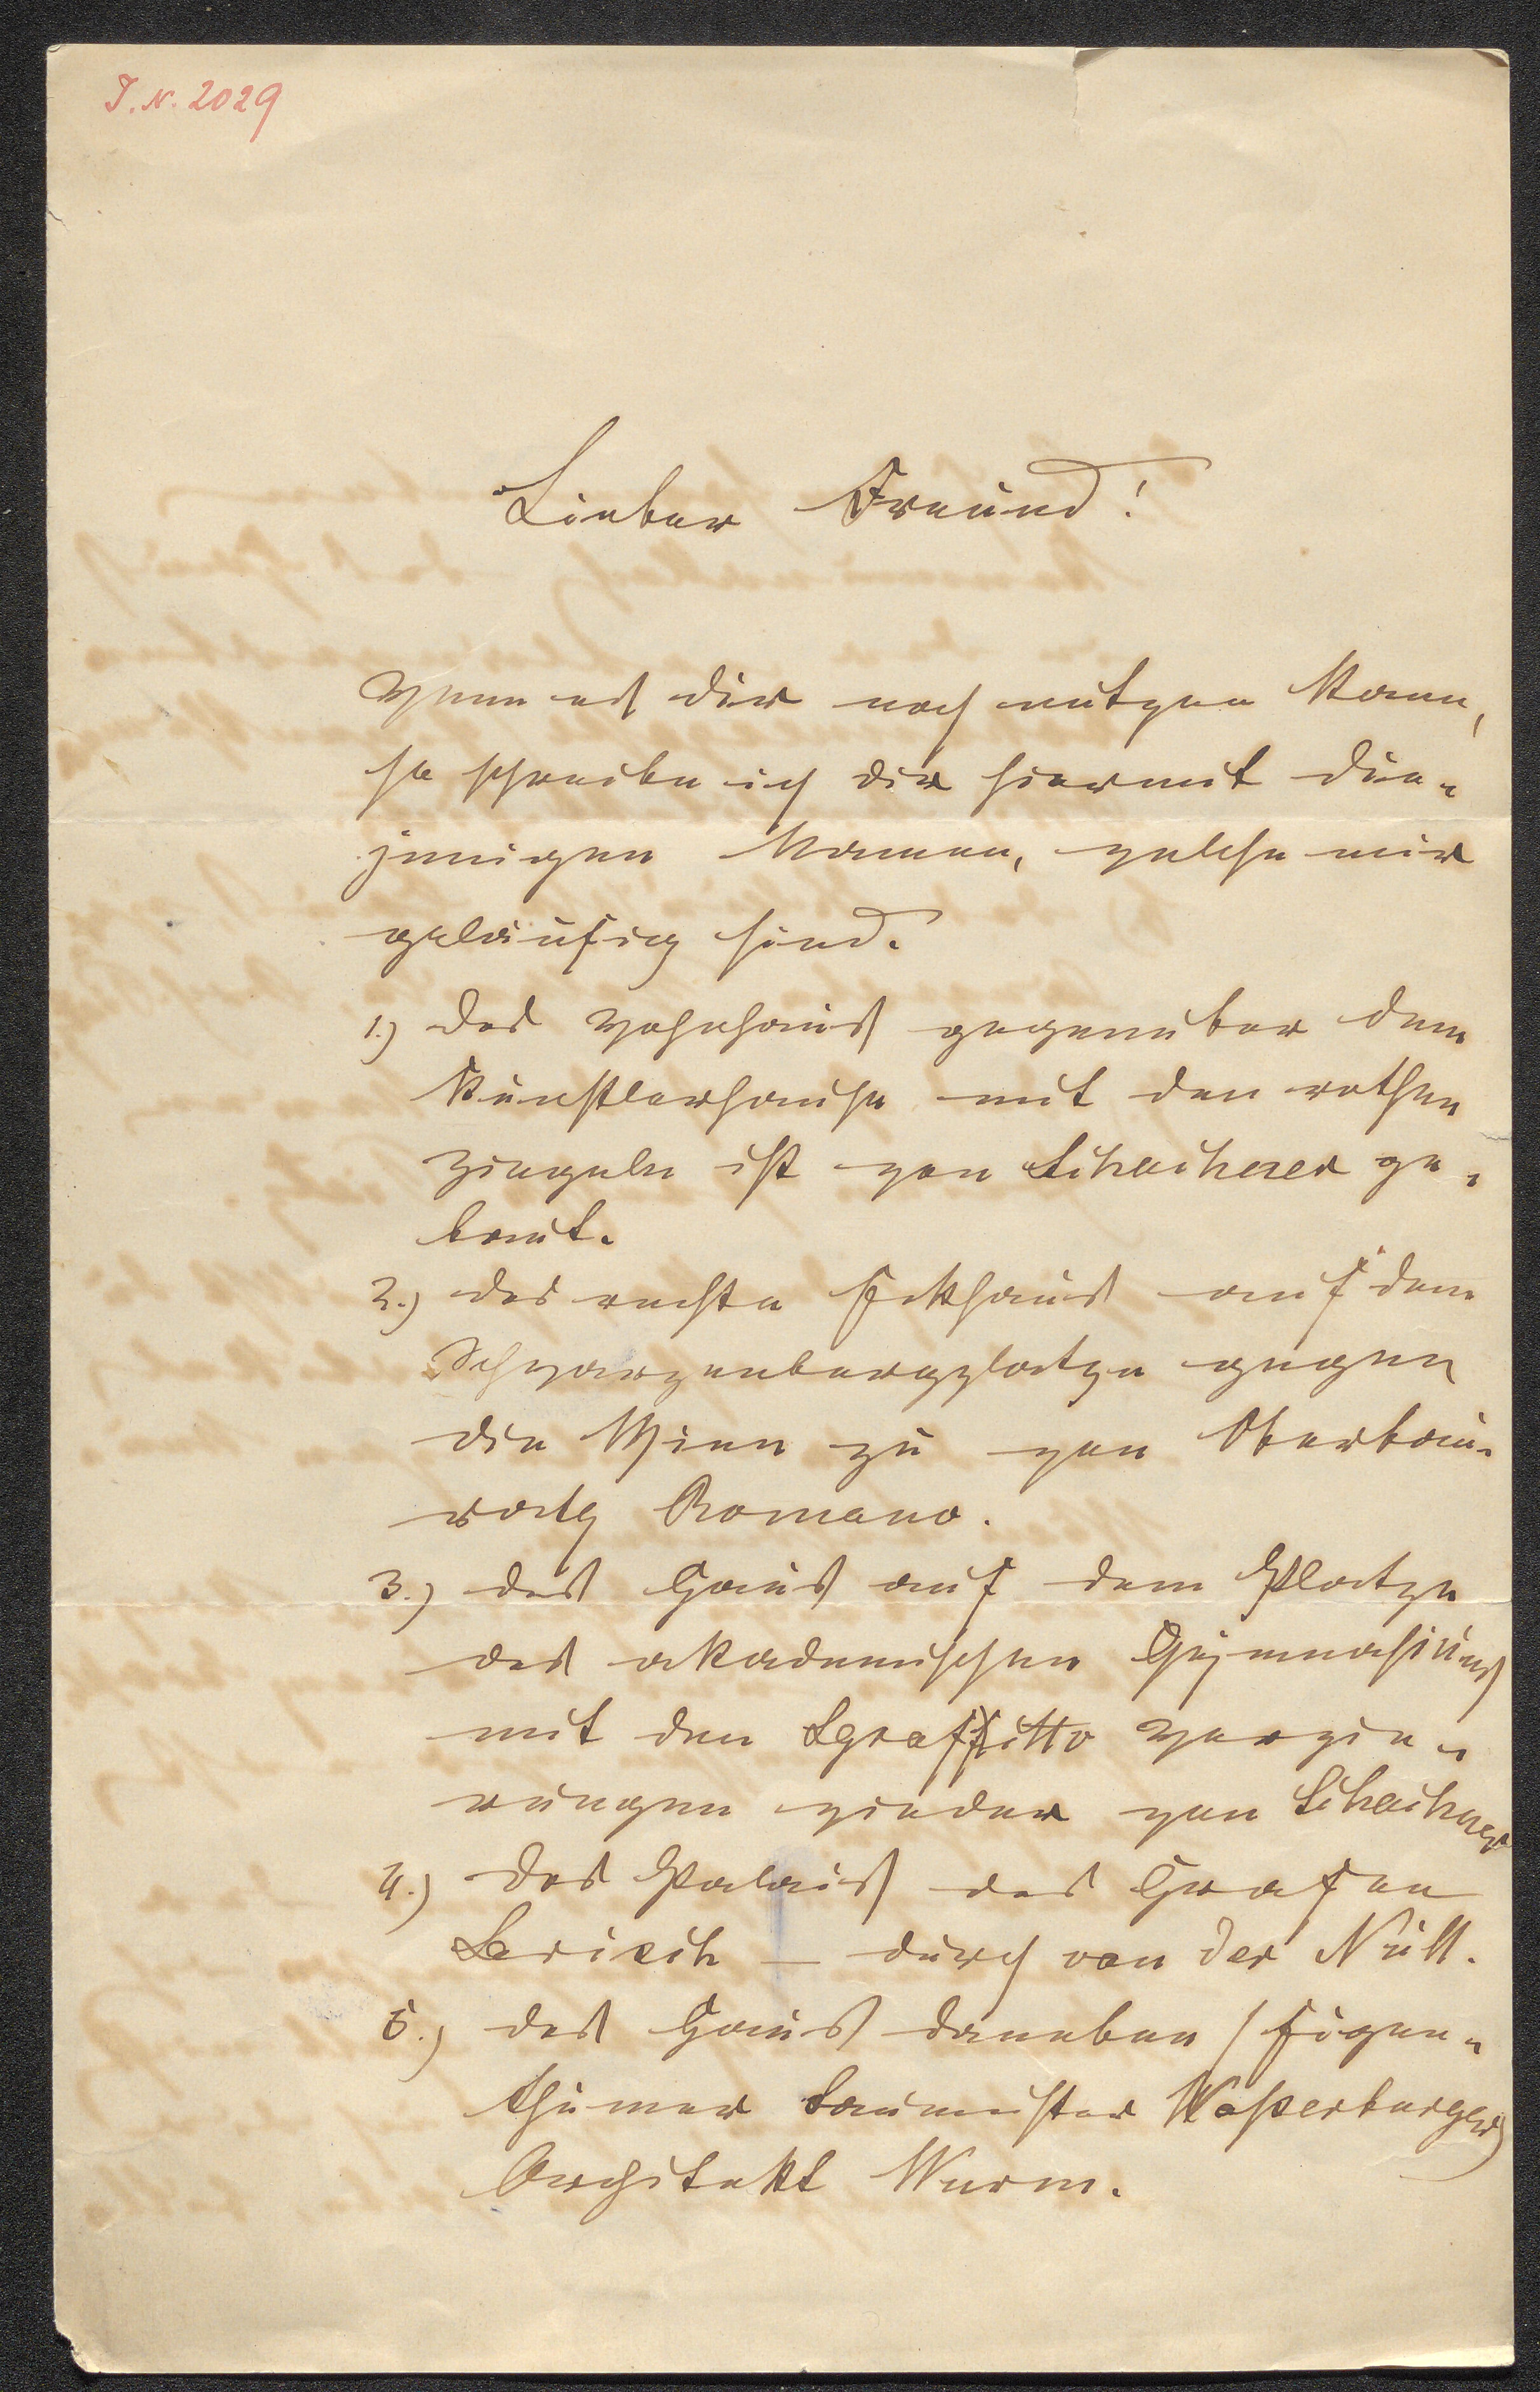 I.N. 2029
Lieber Freund!
Wenn es dir noch nützen kann,
so schreibe ich dir hiermit die-
jenigen Namen, welche mir
geläufig sind.
1.) das Wohnhaus gegenüber dem
Künstlerhause mit den rothen
Ziegeln ist von Schachner ge-
baut.
2.) das rechte Eckhaus auf dem
Schwarzenbergplatze gegen
die Wien zu von Oberbau-
rath Romano.
3.) das Haus auf dem Platze
des akademischen Gymnasiums
mit den Sgraffitto Verzie-
rungen wieder von Schachner
4.) das Palais des Grafen
Larisch – durch van der Nüll.
5.) das Haus daneben (Eigen-
thümer Baumeister Waßerburger)
Architekt Wurm.